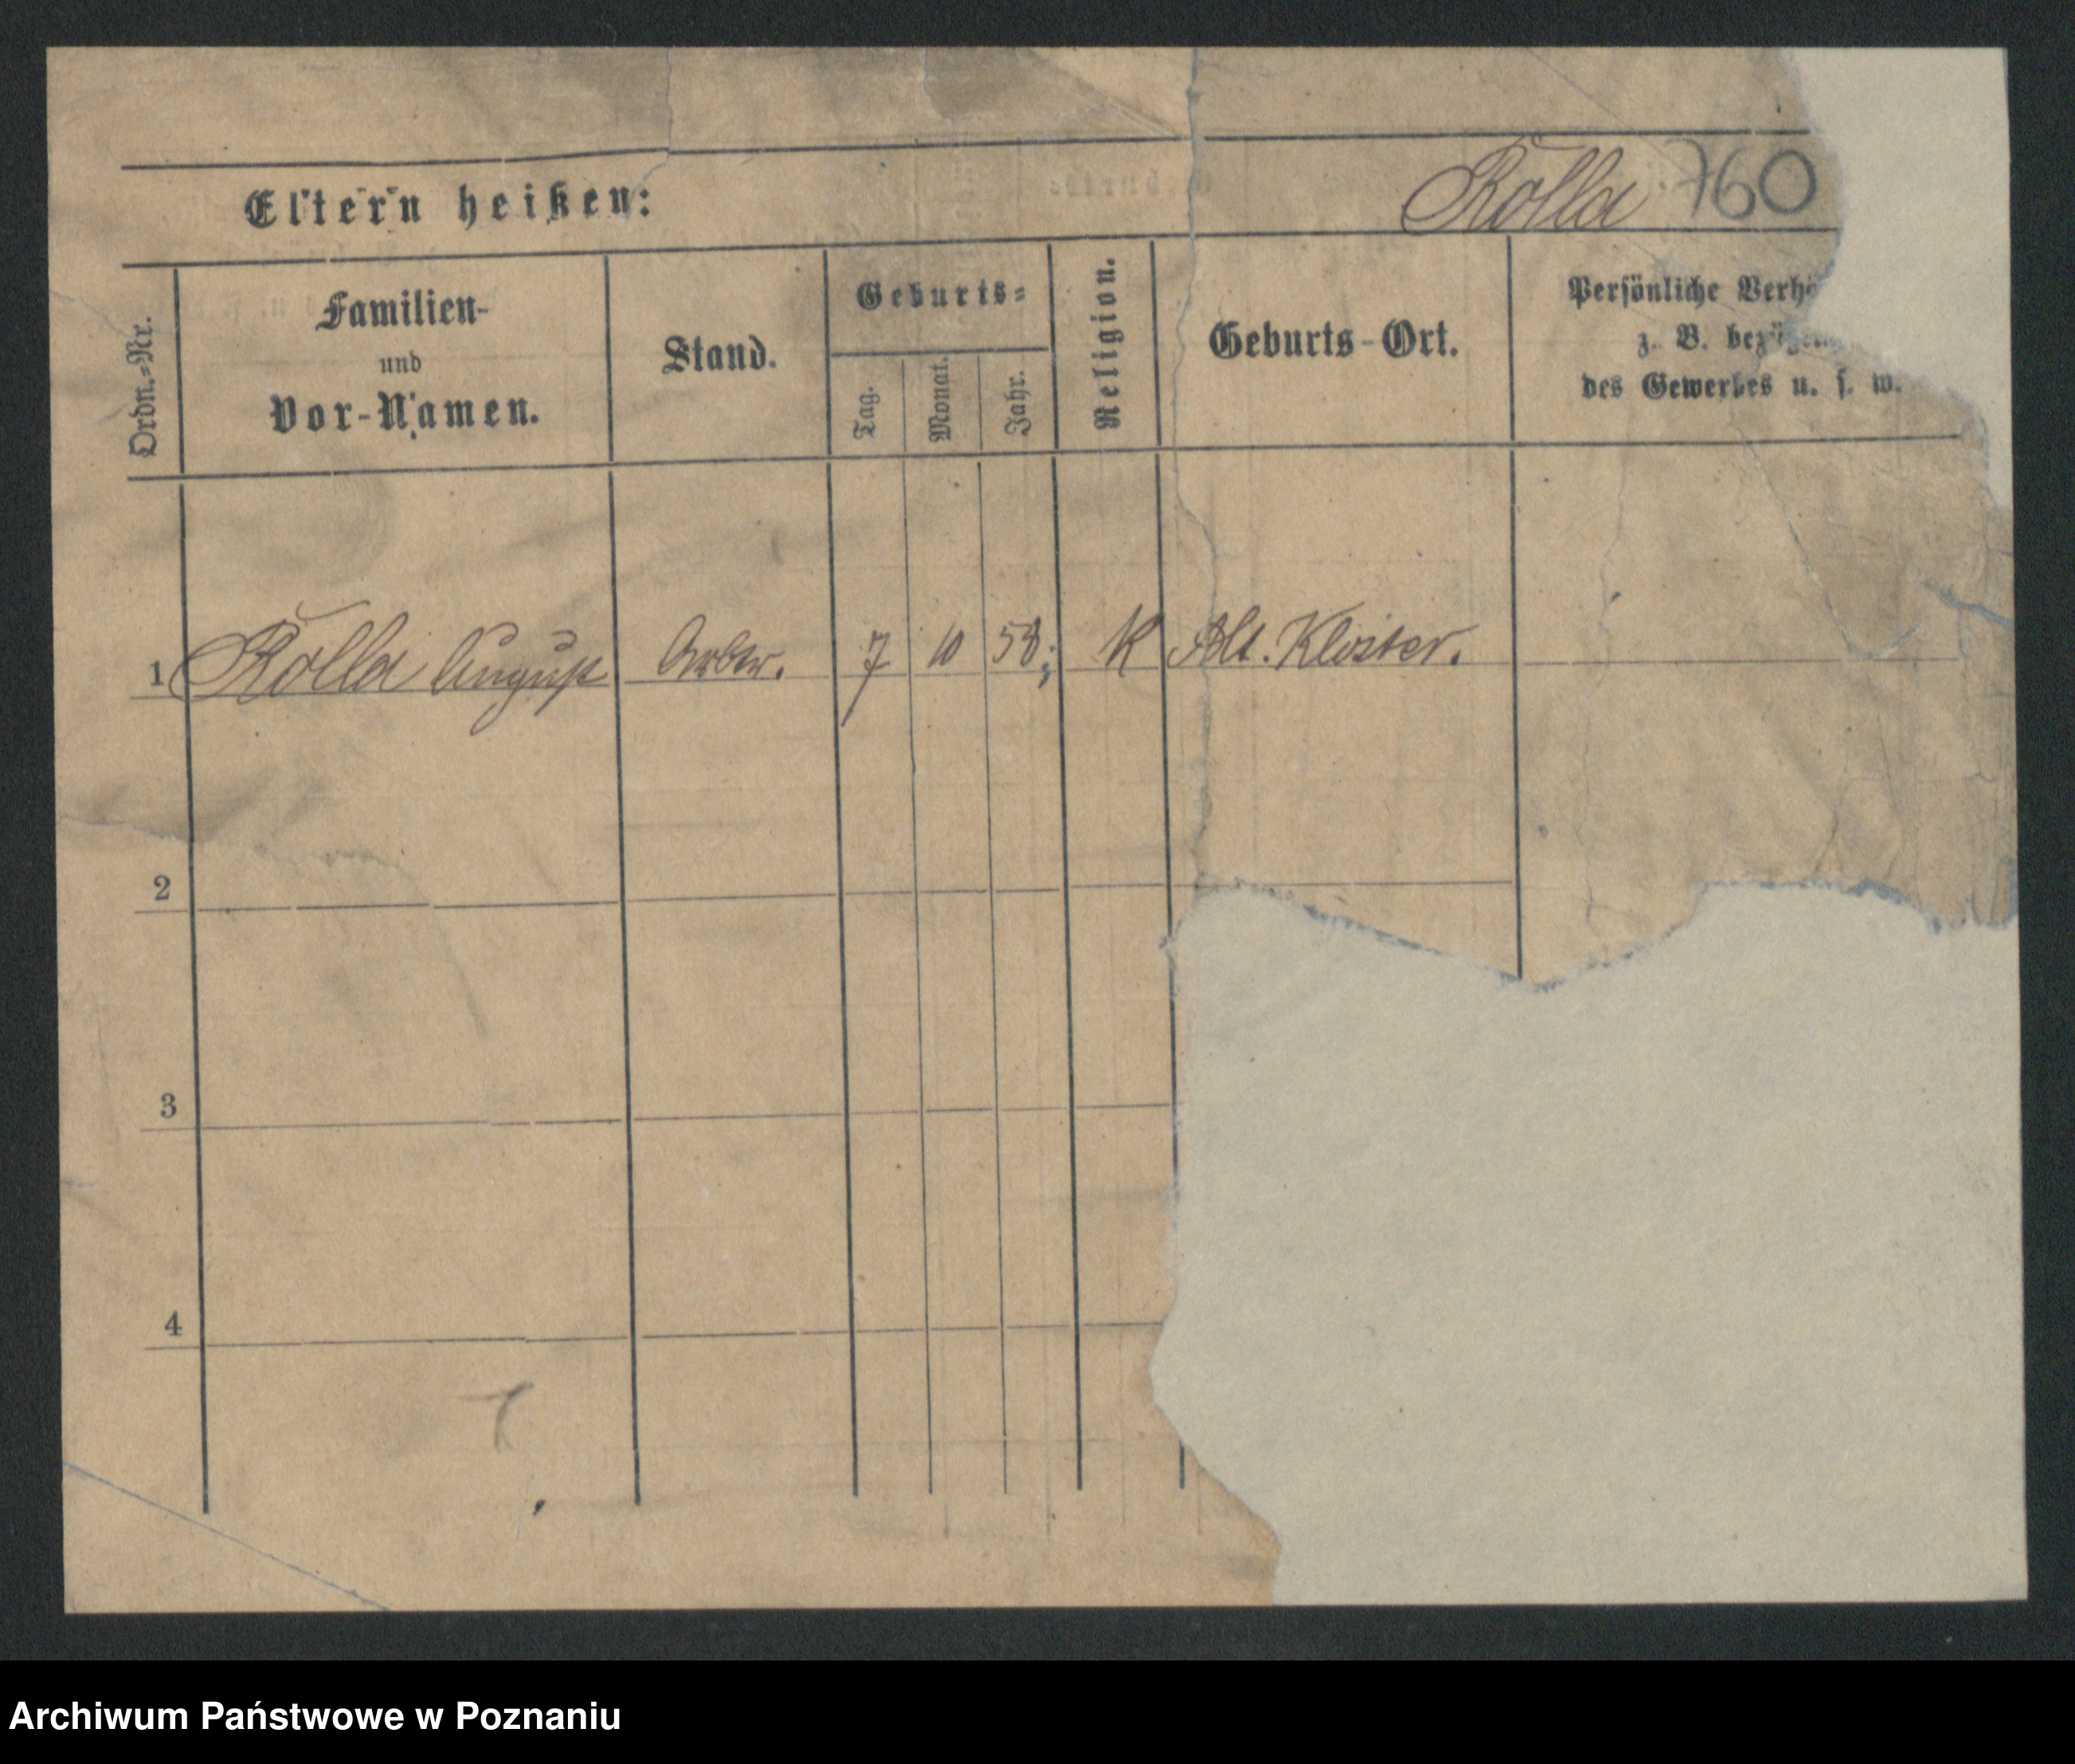 Eltern heißen:
Rolla 760
Ordn.-Nr.
Familien-
und
Vor-Namen.
Stand.
Geburts-
Tag.
Monat.
Jahr.
Religion.
Geburts-Ort.
Persönliche Verhä
z. B. bezügl
des Gewerbes u. s. w.
1 Rolla August Arbtr. 7 10 58; K Alt. Kloster.
2
3
4
Archiwum Państwowe w Poznaniu